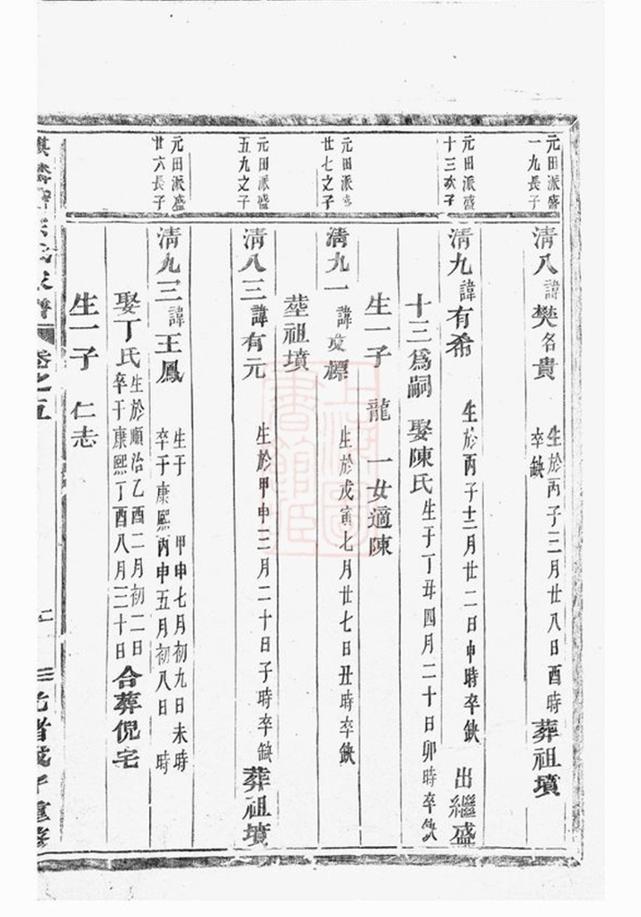 元田派盛
一九長子
清八諱樊名貴
生於丙子三月廿八日酉時
卒缺
葬祖墳
元田派盛
十三次子
清九諱有希
生於丙子十二月廿二日申時卒缺
出繼盛
十三爲嗣
娶陳氏
生于丁丑四月二十日卯時卒缺
生一子
龍
一女適陳
元田派
廿七之子
清九一諱
生於戊寅七月廿七日丑時卒缺
塟祖墳
元田派盛
五九之子
清八三諱有元
生於甲申三月二十日子時卒缺
葬祖墳
元田派盛
廿六長子
清九三諱王鳳
生于
甲申七月初九日未時
卒于康熙丙申五月初八日
時
娶丁氏
生於順治乙酉二月初二日
卒于康熙丁酉八月三十日
合葬倪宅
生一子
仁志
氏
譜
卷之五